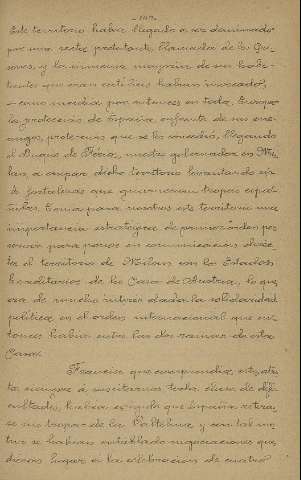 Este territorio habia llegado a ser dominado
por una secta protestante llamada de los Gri-
sones, y la inmensa mayoria de sus habi-
tantes que eran católicos habian invocado,
como sucedia por entonces en toda Europa
la protección de España enfrente de sus ene-
migos, protección que se les concedió, llegando
el Duque de Feria, nuestro gobernador en Mi-
lan, a ocupar dicho territorio levantando en
él fortalezas que guarnecian tropas espa-
ñolas. Tenia para nosotros este territorio una
importancia estratégica de primer orden pues
servia para poner en comunicacion direc-
ta el territorio de Milan con los Estados
hereditarios de la Casa de Austria, lo que
era de mucho interes dada la solidaridad
politica en el orden internacional que en-
tonces habia entre las dos ramas de esta
Casa.
Francia que comprendia esto, aten-
ta siempre á suscitarnos toda clase de difi-
cultades, habia exigido que España retira-
se sus tropas de la Valtelina y con tal mo-
tivo se habian entablado negociaciones que
dieron lugar á la celebracion de cuatro